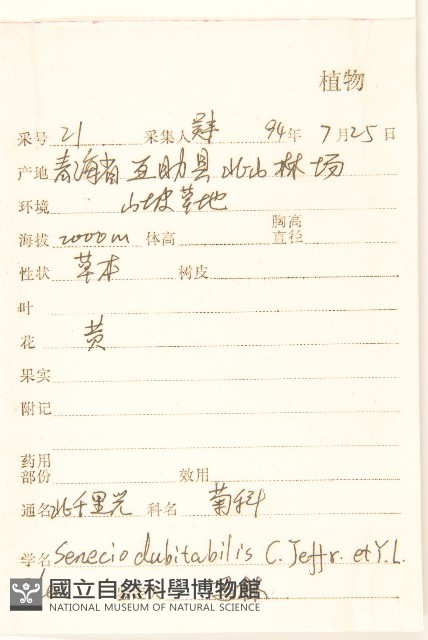 植物
采号 21 采集人 94年 7月25日
产地 青海省互助县北山林场
环境 山坡草地
海拔 2000m 体高 胸高直径
性状 草本 树皮
叶
花 黄
果实
附记
药用部份 效用
通名 北千里光 科名 菊科
学名 Senecio dubitabilis C. Jeffr. et Y.L.
國立自然科學博物館
NATIONAL MUSEUM OF NATURAL SCIENCE